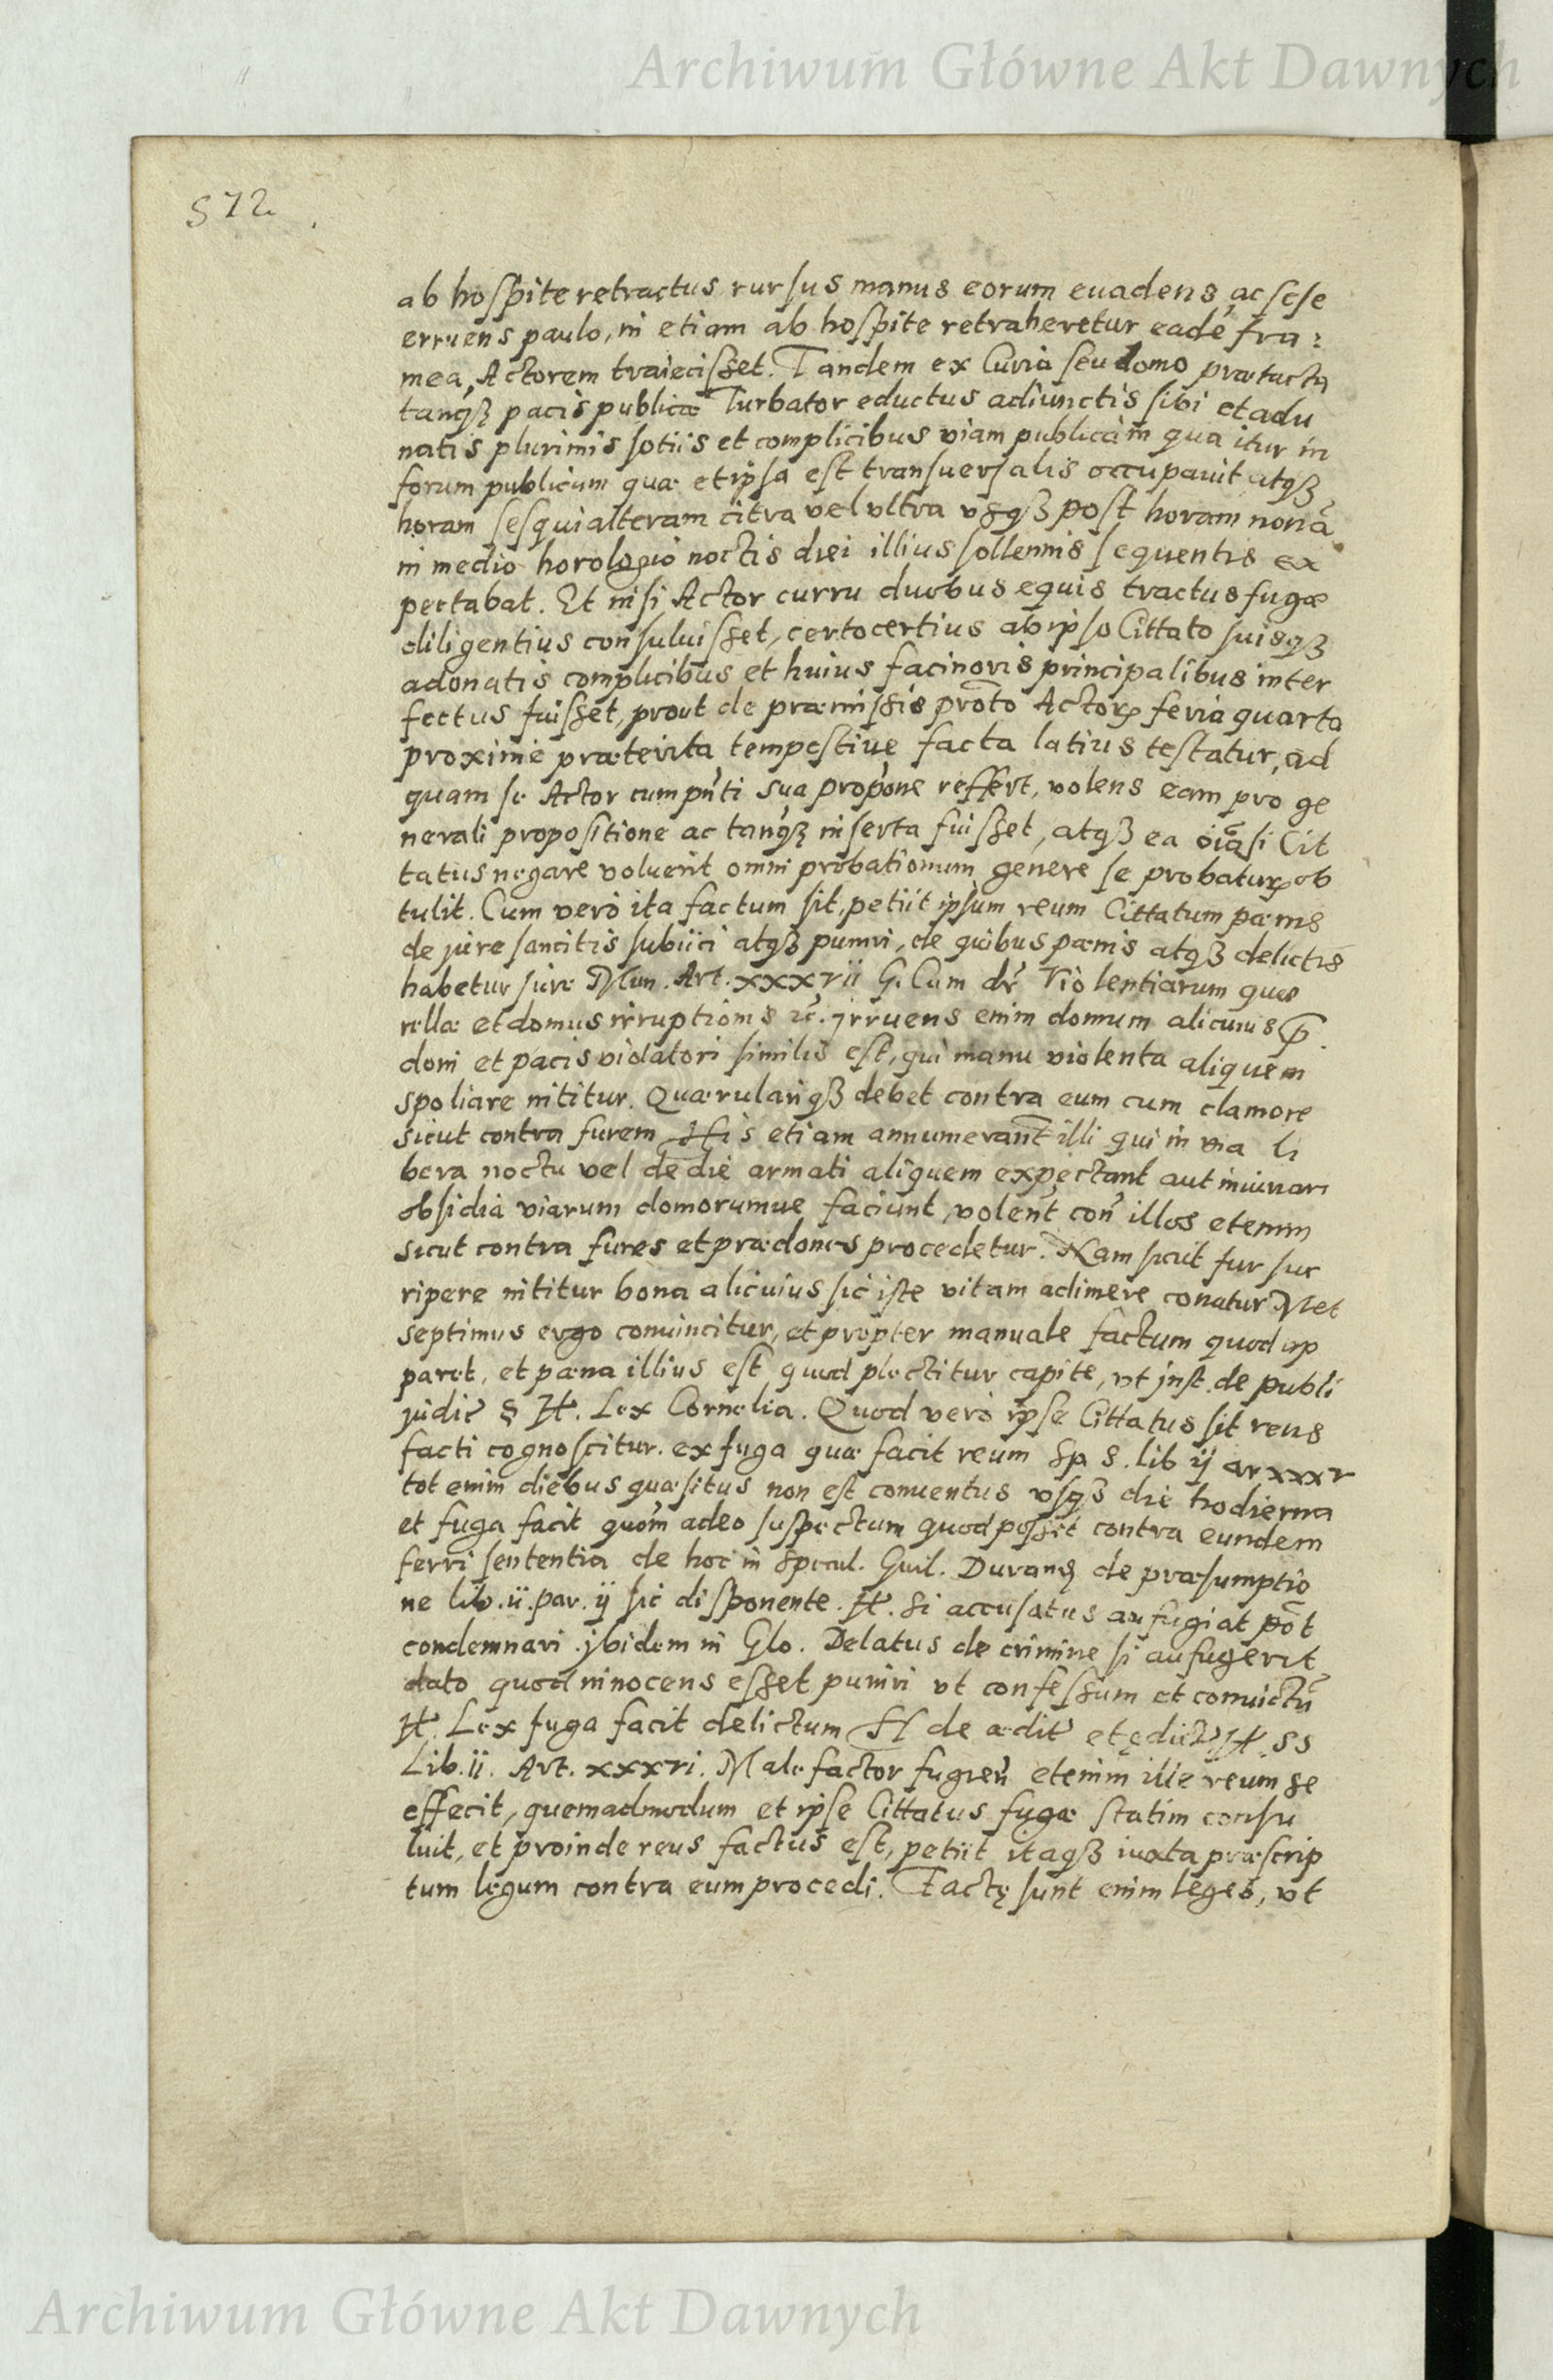 Archiwum Główne Akt Dawnych
572.
ab hospite retractus rursus manus eorum euadens ac sese
erruens paulo, ni etiam ab hospite retraheretur eadẽ fra:
mea, Actorem traiecisset. Tandem ex Curia seu domo prætacta
tanqß pacis publicæ Turbator eductus adiunctis sibi et adu
natis plurimis sotiis et complicibus viam publicam qua itur in
forum publicum quæ et ipsa est transuersalis occupauit atqß
horam sesquialteram citra vel vltra vsqß post horam nonã
in medio horologio noctis diei illius sollennis sequentis ex
pectabat. Et nisi Actor curru duobus equis tractus fugæ
diligentius consuluisset, certo certius ab ipso Cittato suisqß
adonatis complicibus et huius facinoris principalibus inter
fectus fuisset, prout de præmissis prõto Actorꝝ feria quarta
proxime præterita tempestiue facta latius testatur, ad
quam se Actor cum pñti sua propõne reffert, volens eam pro ge
nerali propositione ac tanqß inserta fuisset, atqß ea oĩa si Cit
tatus negare voluerit omni probationum genere se probaturꝝ ob
tulit. Cum vero ita factum sit, petiit ipsum reum Cittatum pænis
de jure sancitis subiici atqß puniri, de quibus pænis atqß delictis
habetur Jure Mun. Art. xxxvii G. Cum dr̃ Violentiarum quæ
rellæ et domus irruptionis ꝛc̃. jrruens enim domum alicuius p̃
doni et pacis violatori similis est, qui manu violenta aliquem
spoliare nititur. Quærulariqß debet contra eum cum clamore
sicut contra furem His etiam annumerant̃ illi qui in via li
bera noctu vel de die armati aliquem expectant aut iniuriari
obsidia viarum domorumue faciunt, volent̃ con̄ illos etenim
sicut contra fures et prædones procedetur. Nam sicut fur sur
ripere nititur bona alicuius sic iste vitam adimere conatur Met
septimus ergo conuincitur, et propter manuale factum quod ap
paret, et pæna illius est quod plectitur capite, vt jnst. de publi
judic̃ § Jt. Lex Cornelia. Quod vero ipse Cittatus sit reus
facti cognoscitur. ex fuga quæ facit reum Sp. S. lib ij ar xxxv
tot enim diebus quæsitus non est conuentus vsqß die hodierna
et fuga facit quom̃ adeo suspectum quod possit contra eundem
ferri sententia de hoc in Specul. Guil. Durand de præsumptio
ne lib. ii. par. ij sic disponente. Jt. Si accusatus aufugiat põt
condemnari. jbidem in Glo. Delatus de crimine si aufugerit
dato quod innocens esset puniri vt confessum et conuictũ
Jt. Lex fuga facit delictum ff de ædit̃ et ędict̃ Jt. SS
Lib. ii. Art. xxxvi. Malefactor fugien̄ etenim ille reum se
effecit, quemadmodum et ipse Cittatus fugæ statim consu
luit, et proinde reus factus est, petiit itaqß iuxta præscrip
tum legum contra eum procedi. Factę sunt enim leges, vt
Archiwum Główne Akt Dawnych